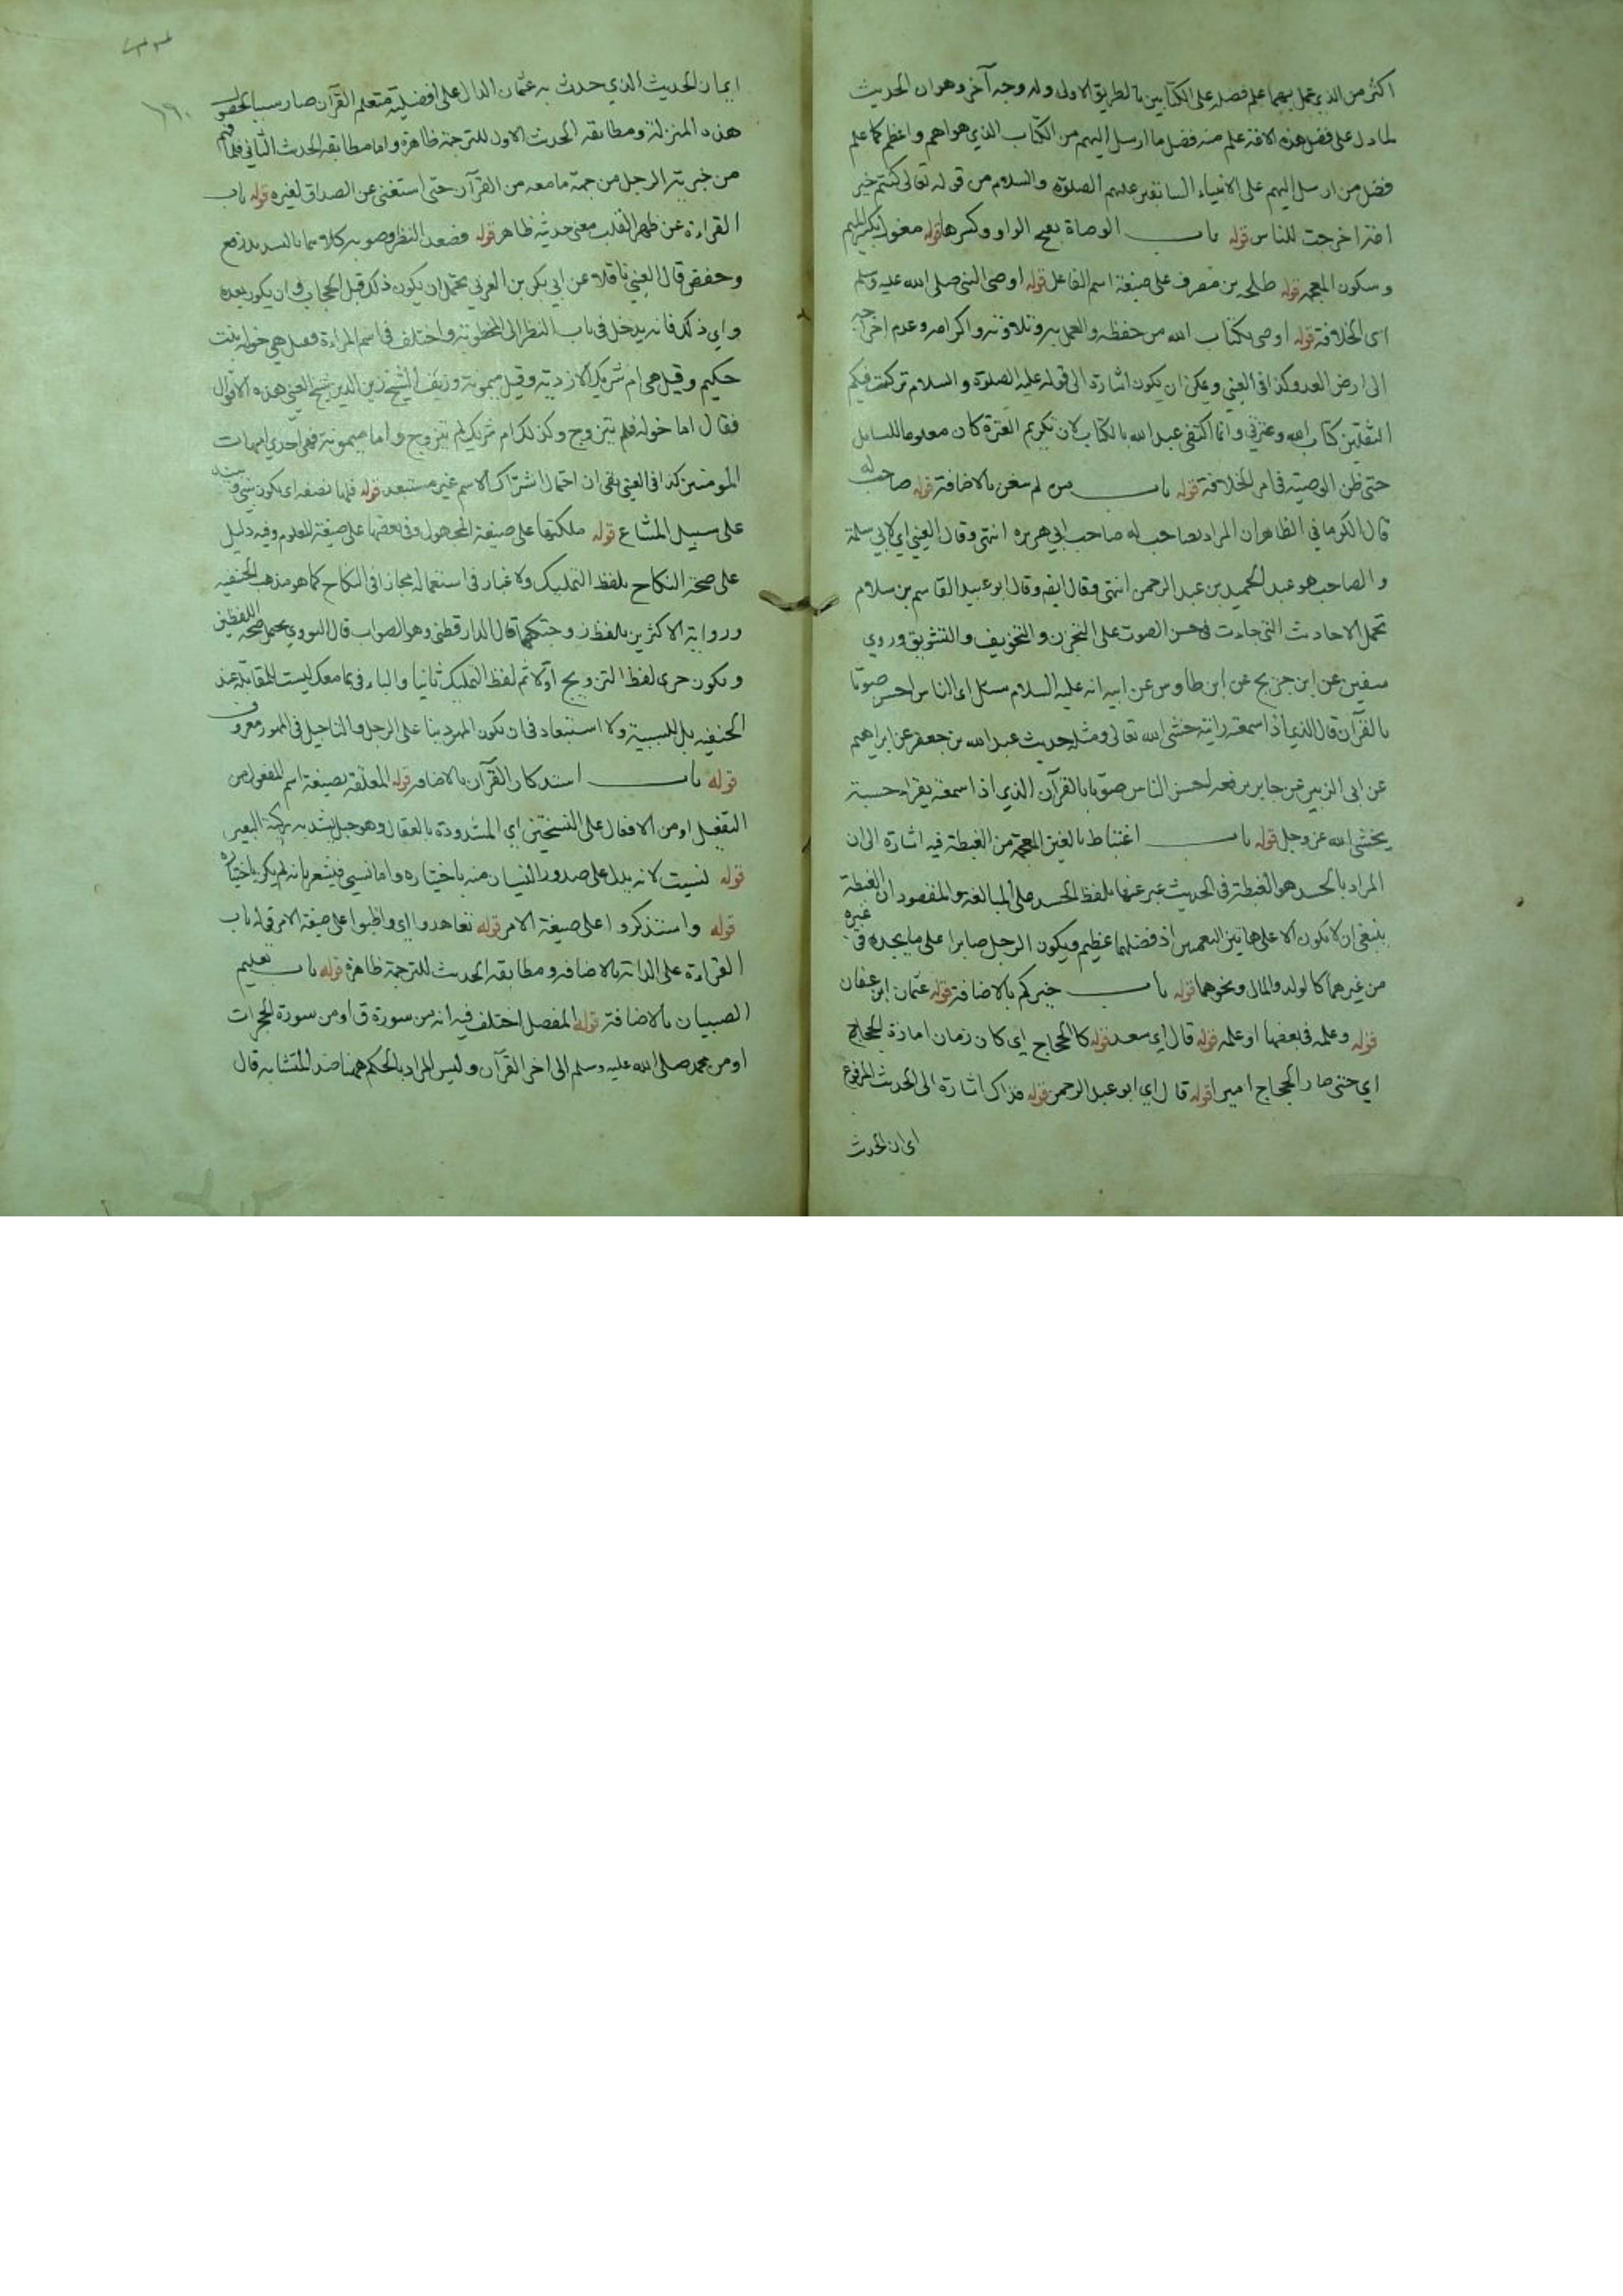 اكثر من الذي عمل بهما علم فضله على الكتابين بالطريق الاولى وله وجه آخر وهو ان الحديث
لما دل على فضل هذه الامة علم منه فضل ما ارسل اليهم من الكتاب الذي هو اهم واعظم كما علم
فضل من ارسل اليهم على الانبياء السابقين عليهم الصلوة والسلام من قوله تعالى كنتم خير
امة اخرجت للناس قوله باب الوصاة بفتح الواو وكسرها قوله مغول بكسر الميم
وسكون المعجمه قوله طلحه بن مصرف على صيغة اسم الفاعل قوله اوصى النبي صلى الله عليه وسلم
اى الخلافة قوله اوصى بكتاب الله من حفظه والعمل به وتلاوته واكرامه وعدم اخراجه
الى ارض العدو كذا في العيني ويمكن ان يكون اشارة الى قوله عليه الصلوة والسلام تركت فيكم
الثقلين كتاب الله وعترتي وانما اكتفى عبد الله بالكتاب لان تكريم العترة كان معلوما للسائل
حتى ظن الوصية في امر الخلافة قوله باب من لم يتغن بالاضافة قوله صاحب له
قال الكرماني الظاهر ان المراد بصاحب له صاحب ابي هريره انتهى وقال العيني اي لابي سلمة
والصاحب هو عبد الحميد بن عبد الرحمن انتهى وقال ايضه وقال ابو عبيد القاسم بن سلام
تحمل الاحاديث التي جاءت في حسن الصوت على التحزن والتخويف والتشويق وروي
سفين عن ابن جريج عن ابن طاوس عن ابيه انه عليه السلام سئل اى الناس احسن صوتا
بالقرآن قال الذي اذا سمعته رايته خشي الله تعالى ومثله حديث عبد الله بن جعفر عن ابراهيم
عن ابى الزبير عن جابر يرفعه احسن الناس صوتا بالقرآن الذي اذا سمعته يقراء حسبته
يخشى الله عز وجل قوله باب اغتباط بالغين المعجمة من الغبطة فيه اشارة الى ان
المراد بالحسد هو الغبطة في الحديث عبر عنها بلفظ الحسد على المبالغة والمقصود ان الغبطة
ينبغي ان لا تكون الا على هاتين النعمتين اذ فضلهما عظيم ويكون الرجل صابرا على ما يجده في غيره
من غيرهما كالولد والمال ونحوهما قوله باب خيركم بالاضافة قوله عثمان ابن عفان
قوله وعلمه في بعضها او علمه قوله قال اي سعد قوله كان الحجاج اي كان زمان امارة الحجاج
اي حتى صار الحجاج اميرا قوله قال اي ابو عبد الرحمن قوله فذاك اشارة الى الحديث المرفوع
اى ان الحديث
١٦٠
اى ان الحديث الذي حدث به عثمان الدال على افضلية متعلم القرآن صار سببا لحصول
هذه المنزلة ومطابقه الحديث الاول للترجمة ظاهرة واما مطابقة الحديث الثاني فلما فهم
من خيرية الرجل من جهة ما معه من القرآن حتى استغنى عن الصداق لغيره قوله باب
القراءة عن ظهر القلب معنى حديثه ظاهر قوله فصعد النظر وصوبه كلاهما بالتشديد رفع
وخفض قال العيني ناقلا عن ابي بكر بن العربي يحتمل ان يكون ذلك قبل الحجاب وان يكون بعده
واي ذلك فانه يدخل في باب النظر الى المخطوبة واختلف في اسم المراءة فقيل هي خولة بنت
حكيم وقيل هي ام شريك الازدية وقيل ميمونة وزيف الشيخ زين الدين شيخ العيني هذه الاقوال
فقال اما خولة فلم تتزوج وكذلك ام شريك لم تتزوج واما ميمونة فهي احدى امهات
المومنين كذا في العيني بقى ان احتمال اشتراك الاسم غير مستبعد قوله فلها نصفه اى يكون بيني وبينه
على سبيل المشاع قوله ملكتها على صيغة المجهول وفي بعضها على صيغة المعلوم وفيه دليل
على صحة النكاح بلفظ التمليك ولا غبار في استعماله مجازا في النكاح كما هو مذهب الحنفيه
ورواية الاكثرين بلفظ زوجتكها قال الدارقطني وهو الصواب قال النووي يحتمل صحة اللفظين
ويكون جرى لفظ التزويج اولا ثم لفظ التمليك ثانيا والباء في بما معك ليست للمقابلة عند
الحنفيه بل للسببية ولا استبعاد في ان يكون المهر دينا على الرجل والتاجيل في المهور معروف
قوله باب استذكار القرآن بالاضافه قوله المعلقة بصيغة اسم المفعول من
التفعيل او من الافعال على النسختين اي المشدودة بالعقال وهو حبل يشد به ركبة البعير
قوله نسيت لانه يدل على صدور النسيان منه باختياره واما نسي فيشعر بانه لم يكن باختياره
قوله واستذكروا على صيغة الامر قوله تعاهدوا اي واظبوا على صيغة الامر قوله باب
القراءة على الدابة بالاضافه ومطابقه الحديث للترجمة ظاهرة قوله باب تعليم
الصبيان بالاضافة قوله المفصل اختلف فيه انه من سورة ق او من سورة الحجرات
او من محمد صلى الله عليه وسلم الى اخر القرآن وليس المراد بالمحكم ههنا ضد المتشابه قال